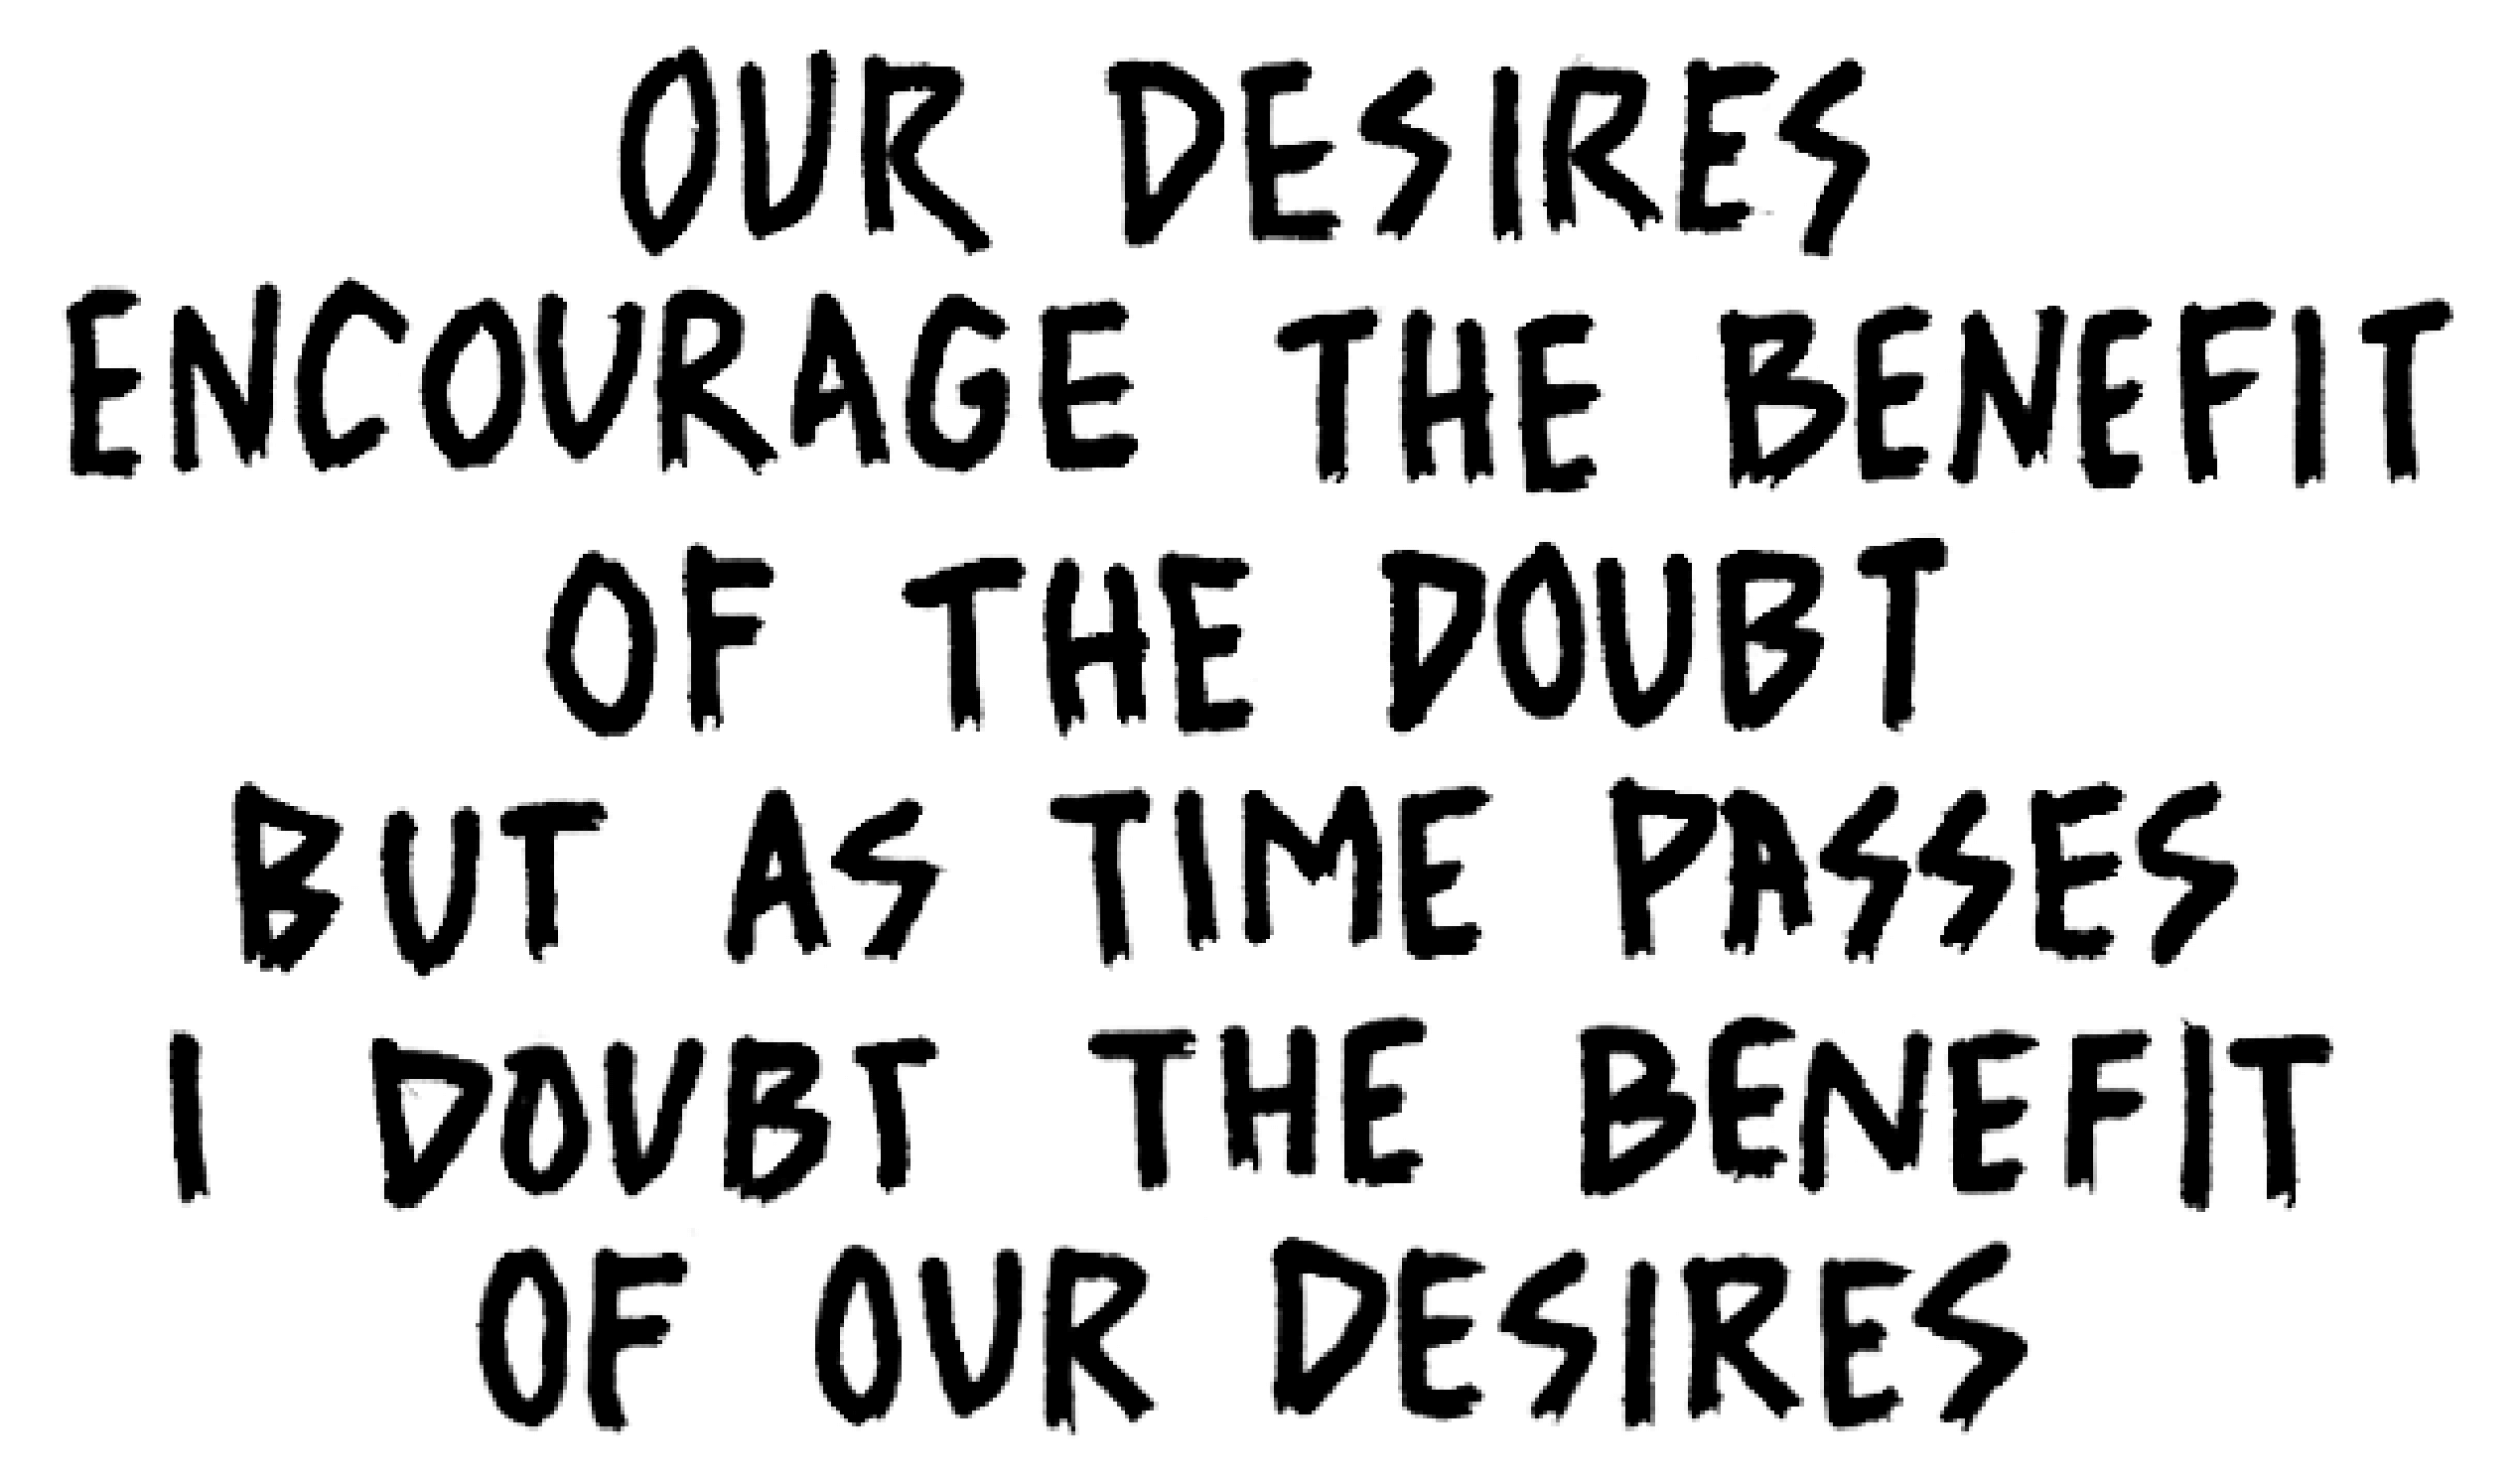 OUR DESIRES
ENCOURAGE THE BENEFIT
OF THE DOUBT
BUT AS TIME PASSES
I DOUBT THE BENEFIT
OF OUR DESIRES